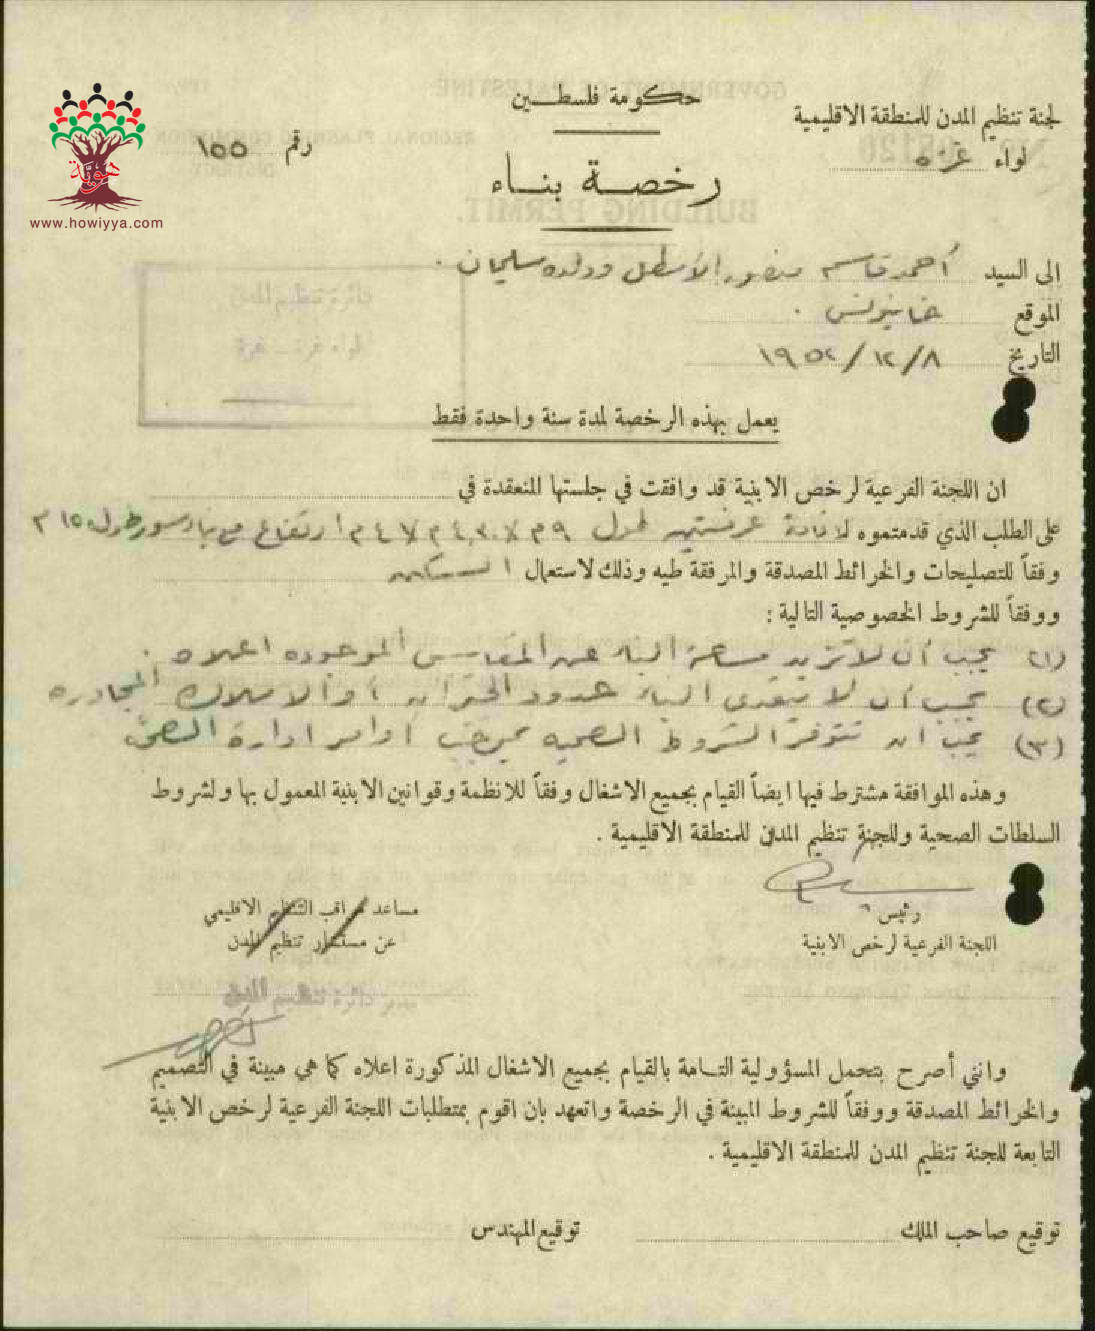 حكومة فلسطين
لجنة تنظيم المدن للمنطقة الاقليمية
لواء غزه
رقم ١٥٥
رخصة بناء
هوية
www.howiyya.com
الى السيد أحمد قاسم منصور الأسطل وولده سليمان .
الموقع خانيونس .
التاريخ ٨ / ١٢ / ١٩٥٢
دائرة تنظيم المدن
لواء غزة - غزة
يعمل بهذه الرخصة لمدة سنة واحدة فقط
ان اللجنة الفرعية لرخص الابنية قد وافقت في جلستها المنعقدة في
على الطلب الذي قدمتموه لاقامة غرفتين طول ارتفاع سور طول ١٥ م
وفقاً للتصليحات والخرائط المصدقة والمرفقة طيه وذلك لاستعمال السكن
ووفقاً للشروط الخصوصية التالية :
(١) يجب أن لا تزيد مساحة البناء عن المقاييس الموجوده اعلاه .
(٢) يجب أن لا يتعدى البناء حدود الجيران أو الاملاك المجاوره
(٣) يجب ان تتوفر الشروط الصحيه بموجب أوامر ادارة الصحة
وهذه الموافقة مشترط فيها ايضاً القيام بجميع الاشغال وفقاً للانظمة وقوانين الابنية المعمول بها ولشروط
السلطات الصحية وللجنة تنظيم المدن للمنطقة الاقليمية .
رئيس
اللجنة الفرعية لرخص الابنية
مساعد مراقب التنظيم الاقليمي
عن مستشار تنظيم المدن
مدير دائرة تنظيم المدن
وانني أصرح بتحمل المسؤولية التامة بالقيام بجميع الاشغال المذكورة اعلاه كما هي مبينة في التصميم
والخرائط المصدقة ووفقاً للشروط المبينة في الرخصة واتعهد بان اقوم بمتطلبات اللجنة الفرعية لرخص الابنية
التابعة للجنة تنظيم المدن للمنطقة الاقليمية .
توقيع صاحب الملك
توقيع المهندس